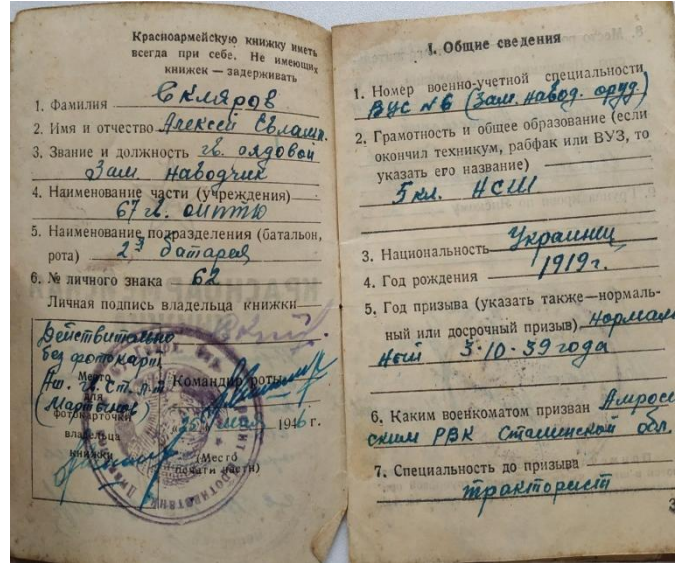 Красноармейскую книжку иметь
всегда при себе. Не имеющих
книжек — задерживать
1. Фамилия Скляров
2. Имя и отчество Алексей Евламп.
3. Звание и должность гв. рядовой
Зам. наводчик
4. Наименование части (учреждения)
67 гв.
5. Наименование подразделения (батальон,
рота) 2я батарея
6. № личного знака 62
Личная подпись владельца книжки
Действительно
без фотокарт.
Место
для
(Мартынов)
фотокарточки
владельца
книжки
Командир роты
«25» мая 1946 г.
(Место
печати части)
I. Общие сведения
1. Номер военно-учетной специальности
ВУС №6 (Зам. навод. оруд.)
2. Грамотность и общее образование (если
окончил техникум, рабфак или ВУЗ, то
указать его название)
5 кл. НСШ
3. Национальность Украинец
4. Год рождения 1919 г.
5. Год призыва (указать также—нормаль-
ный или досрочный призыв) нормаль
ный 3-10-39 года
6. Каким военкоматом призван Амросi
ским РВК Сталинской обл.
7. Специальность до призыва
тракторист
3